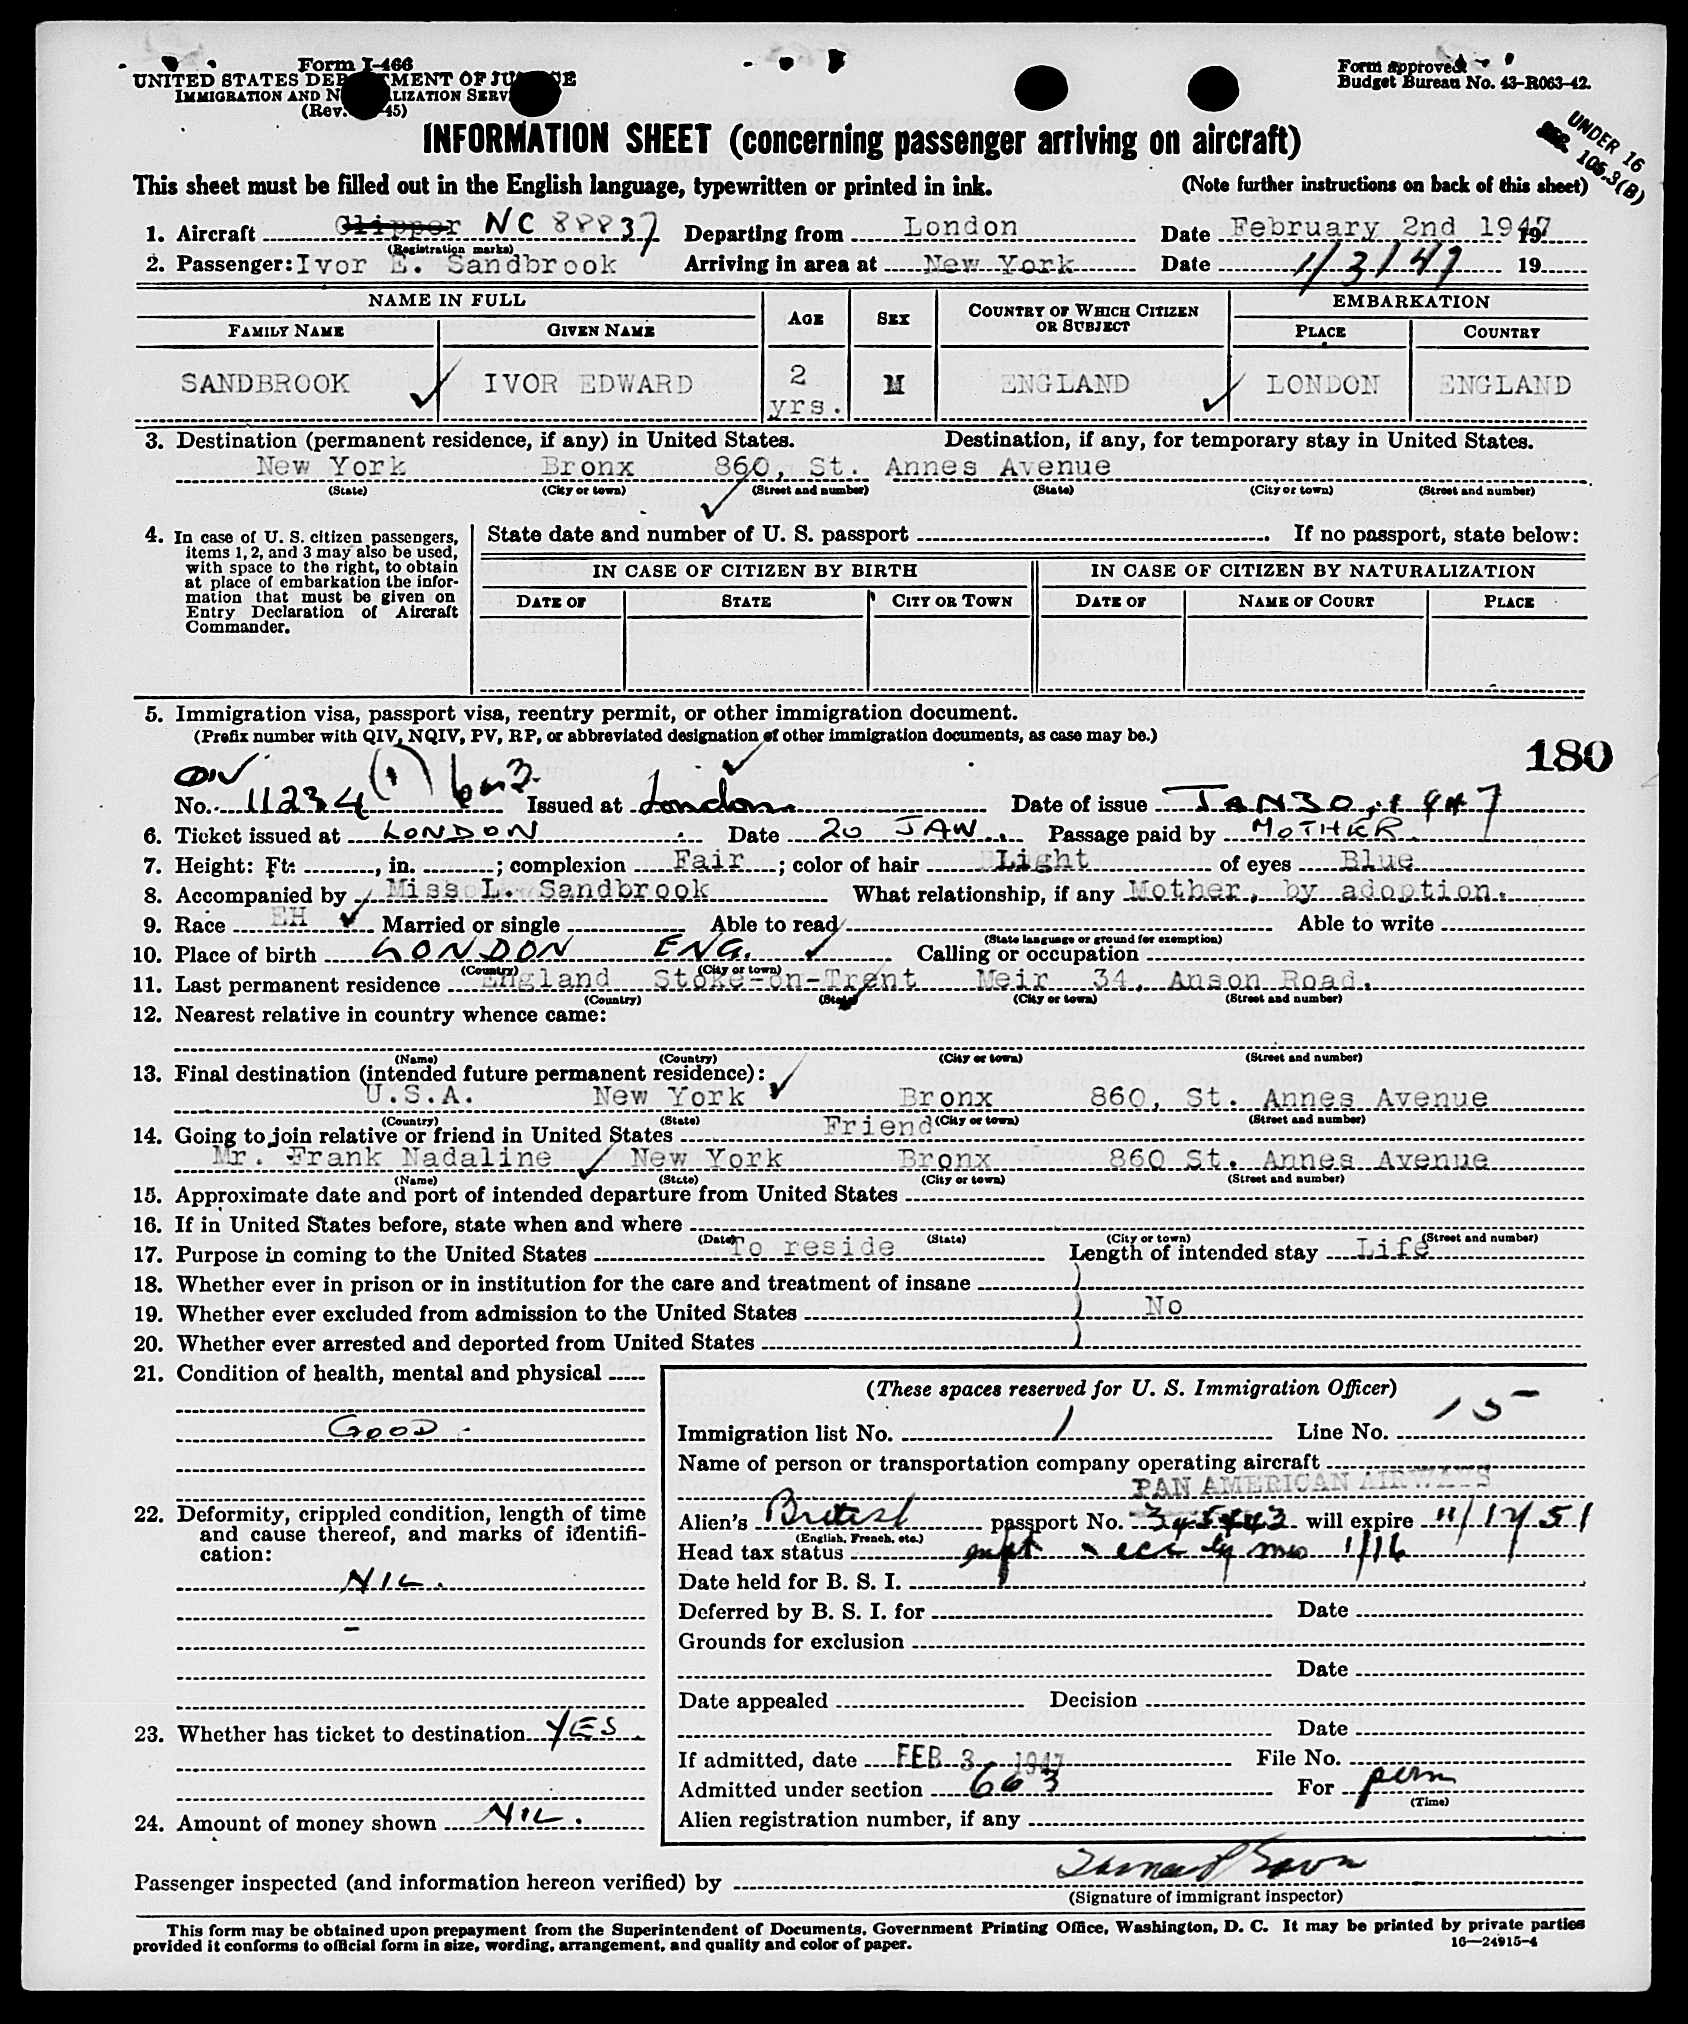 Form I-466
UNITED STATES DEPARTMENT OF JUSTICE
IMMIGRATION AND NATURALIZATION SERVICE
(Rev. -45)
Form approved
Budget Bureau No. 43-R063-42.
UNDER 16
SEC. 105.3(B)
INFORMATION SHEET (concerning passenger arriving on aircraft)
This sheet must be filled out in the English language, typewritten or printed in ink. (Note further instructions on back of this sheet)
1. Aircraft Clipper NC 88837 Departing from London Date February 2nd 1947 19
(Registration marks)
2. Passenger: Ivor E. Sandbrook Arriving in area at New York Date 1/3/47 19
NAME IN FULL AGE SEX COUNTRY OF WHICH CITIZEN OR SUBJECT EMBARKATION
FAMILY NAME GIVEN NAME PLACE COUNTRY
SANDBROOK IVOR EDWARD 2 yrs. M ENGLAND LONDON ENGLAND
3. Destination (permanent residence, if any) in United States. Destination, if any, for temporary stay in United States.
New York Bronx 860, St. Annes Avenue
(State) (City or town) (Street and number) (State) (City or town) (Street and number)
4. In case of U. S. citizen passengers, items 1, 2, and 3 may also be used, with space to the right, to obtain at place of embarkation the information that must be given on Entry Declaration of Aircraft Commander.
State date and number of U. S. passport . If no passport, state below:
IN CASE OF CITIZEN BY BIRTH IN CASE OF CITIZEN BY NATURALIZATION
DATE OF STATE CITY OR TOWN DATE OF NAME OF COURT PLACE
5. Immigration visa, passport visa, reentry permit, or other immigration document.
(Prefix number with QIV, NQIV, PV, RP, or abbreviated designation of other immigration documents, as case may be.)
180
QIV
No. 11234 (1) 6 m 3 Issued at London Date of issue JAN 30, 1947
6. Ticket issued at LONDON Date 20 JAN. Passage paid by MOTHER
7. Height: Ft: , in. ; complexion Fair ; color of hair Light of eyes Blue
8. Accompanied by Miss L. Sandbrook What relationship, if any Mother, by adoption.
9. Race EH Married or single Able to read Able to write
(State language or ground for exemption)
10. Place of birth LONDON ENG. Calling or occupation
(Country) (City or town)
11. Last permanent residence England Stoke-on-Trent Meir 34, Anson Road.
(Country) (State) (City or town) (Street and number)
12. Nearest relative in country whence came:
(Name) (Country) (City or town) (Street and number)
13. Final destination (intended future permanent residence):
U.S.A. New York Bronx 860, St. Annes Avenue
(Country) (State) (City or town) (Street and number)
14. Going to join relative or friend in United States Friend
Mr. Frank Nadaline New York Bronx 860 St. Annes Avenue
(Name) (State) (City or town) (Street and number)
15. Approximate date and port of intended departure from United States
16. If in United States before, state when and where
(Date) (State) (City or town) (Street and number)
17. Purpose in coming to the United States To reside Length of intended stay Life
18. Whether ever in prison or in institution for the care and treatment of insane )
19. Whether ever excluded from admission to the United States ) No
20. Whether ever arrested and deported from United States )
21. Condition of health, mental and physical
GOOD
22. Deformity, crippled condition, length of time and cause thereof, and marks of identification:
NIL.
23. Whether has ticket to destination YES
24. Amount of money shown NIL.
(These spaces reserved for U. S. Immigration Officer)
Immigration list No. 1 Line No. 15
Name of person or transportation company operating aircraft
PAN AMERICAN AIRWAYS
Alien's British passport No. will expire 11/17/51
(English, French, etc.)
Head tax status 1/16
Date held for B. S. I.
Deferred by B. S. I. for Date
Grounds for exclusion
Date
Date appealed Decision
Date
If admitted, date FEB 3 1947 File No.
Admitted under section 663 For perm
(Time)
Alien registration number, if any
Passenger inspected (and information hereon verified) by
(Signature of immigrant inspector)
This form may be obtained upon prepayment from the Superintendent of Documents, Government Printing Office, Washington, D. C. It may be printed by private parties
provided it conforms to official form in size, wording, arrangement, and quality and color of paper.
16—24915-4